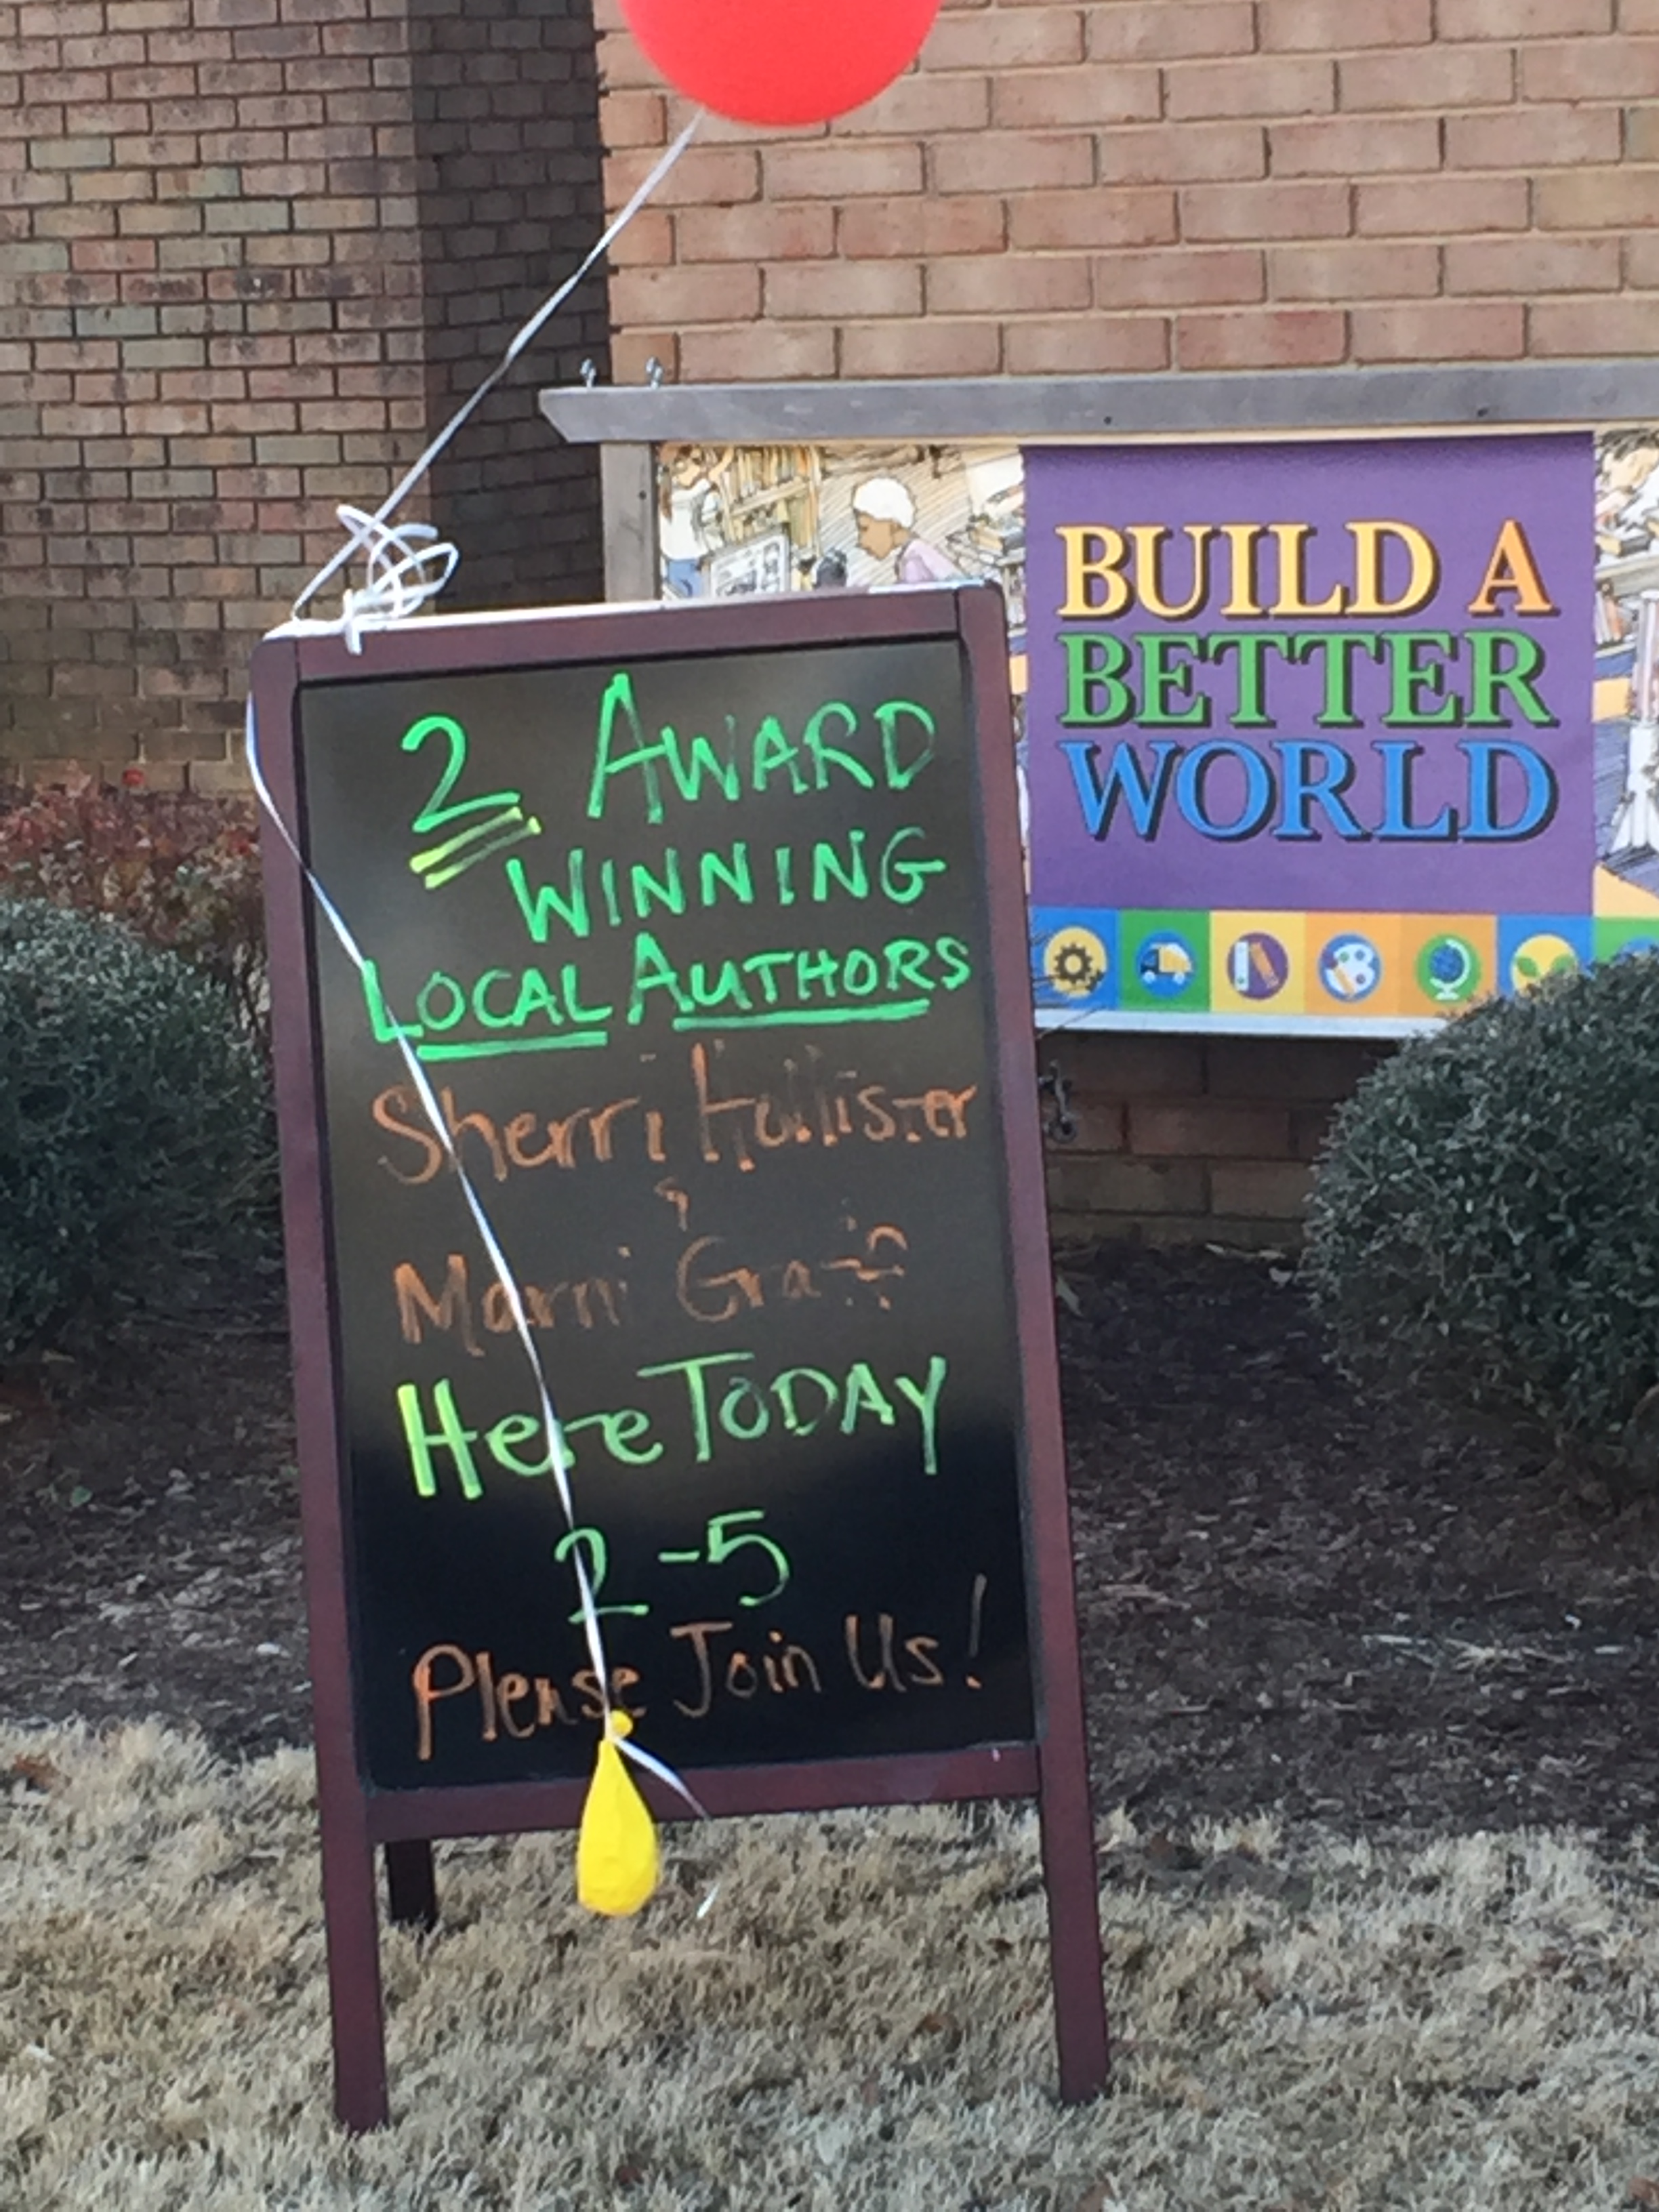 2 AWARD
WINNING
LOCAL AUTHORS
Sherri Hollister
&
Marni Graff
Here TODAY
2-5
Please Join Us!
BUILD A
BETTER
WORLD